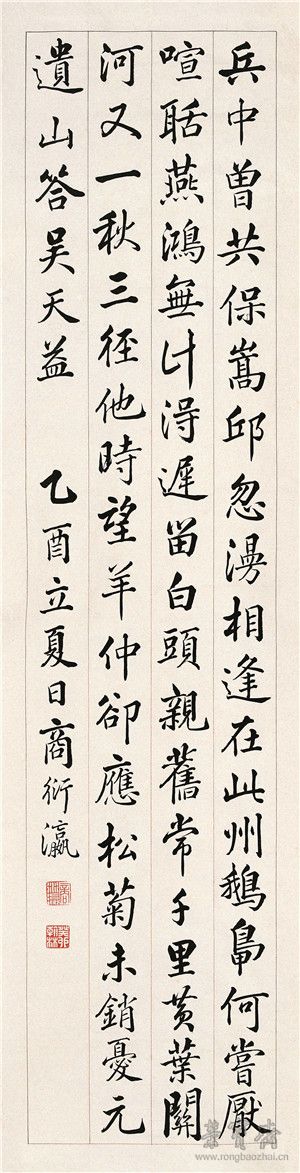 兵中曾共保嵩邱忽漫相逢在此州鵝鳧何嘗厭
喧聒燕鴻無計淂遲留白頭親舊常千里黄葉關
河又一秋三徑他時望羊仲卻應松菊未銷憂元
遺山答吴天益 乙酉立夏日商衍瀛
榮寶齋
www.rongbaozhai.cn